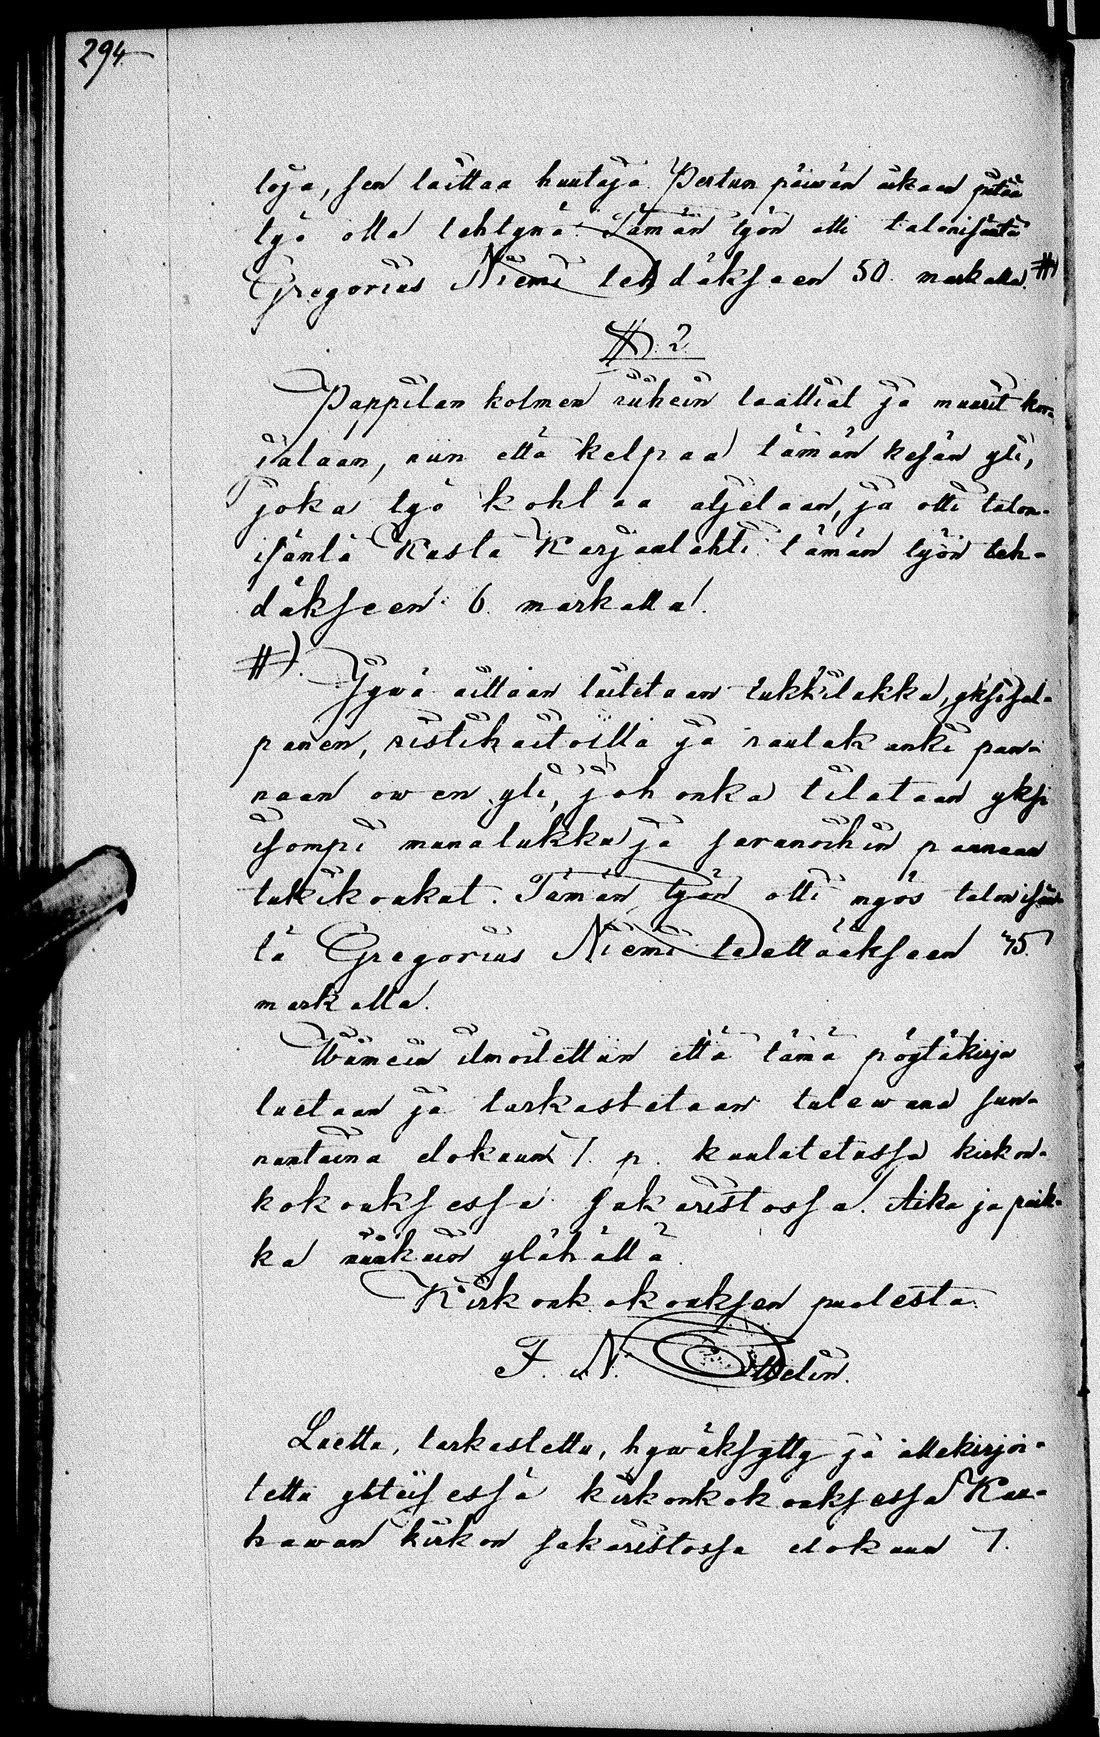 294
toja, sen laittaa huutaja. Pertun päiwän aikaan pitää
työ olla tehtynä. Tämän työn otti talonisäntä
Gregorius Niemi tehdäkseen 50 markalla. #)
§ 2
Pappilan kolmen riihein laattiat ja muurit kor-
jataan, niin että kelpaa tämän kesän yli,
joka työ kohtaa aljetaan, ja otti talon-
isäntä Kusta Karjanlahti tämän työn teh-
däkseen 6 markalla.
#). Jywä aittaan laitetaan lukkilakka, yksi sal-
panen, ristikaitoilla ja rautakanki pan-
naan owen yli, johonka tilataan yksi
isompi munalukku ja saranoihin pannaan
tukikoukut. Tämän työn otti myös talonisän-
tä Gregorius Niemi teettääkseen 45
markalla.
Wiimein ilmoitettiin että tämä pöytäkirja
luetaan ja tarkastetaan tulewana sun-
nuntaina elokuun 7. p. kuulutetussa kirkon-
kokouksessa sakaristossa. Aika ja paik-
ka niinkuin ylähällä.
Kirkonkokouksen puolesta
F. N. Ottelin.
Luettu, tarkastettu, hywäksytty ja allekirjoi-
tettu yhteisessä kirkonkokouksessa Kau-
hawan kirkon sakaristossa elokuun 7.